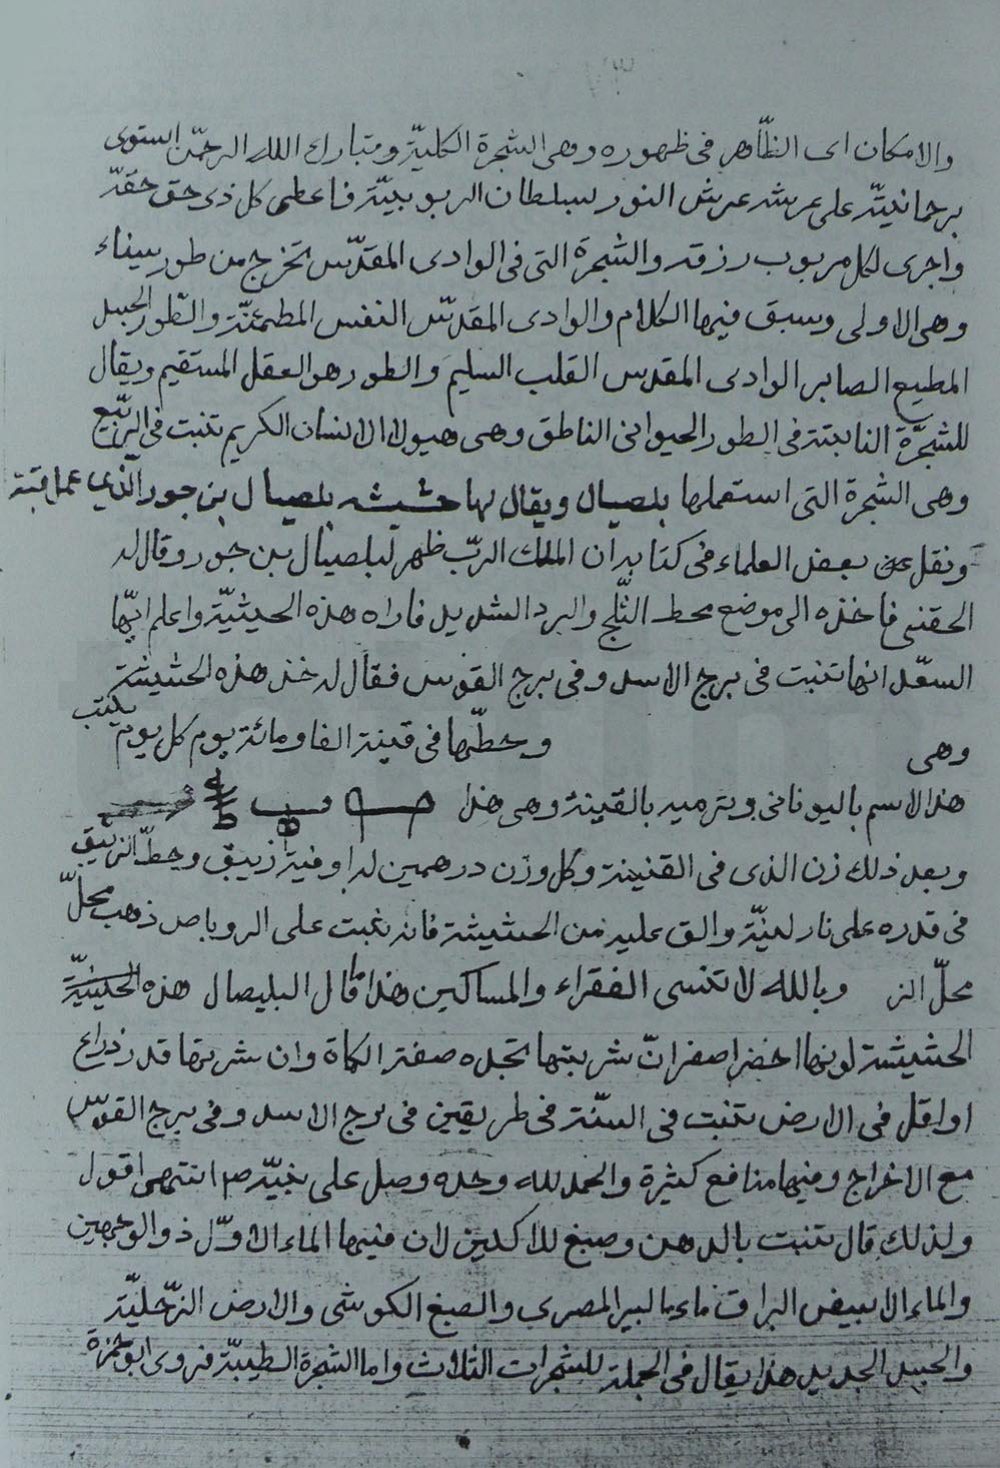 والامكان اى الظّاهر فى ظهوره وهى الشجرة الكليّة وتبارك الله الرحمن استوى
برحمانيّته على عرشه عرش النور لسلطان الربوبيّة فاعطى كل ذى حق حقّه
واجرى لكل مربوب رزقه والشجرة التى فى الوادى المقدّس تخرج من طور سيناء
وهى الاولى وسبق فيها الكلام والوادى المقدّس النفس المطمئنّة والطور الجبل
المطيع الصابر الوادى المقدس القلب السليم والطور هو العقل المستقيم ويقال
للشجرة النابتة فى الطور الحيوانى الناطق وهى هيولا الانسان الكريم تنبت فى الربيع
وهى الشجرة التى استعملها بلصيال ويقال لها حشيشه بلصيال بن حور الذى عمل قبة
ونقل عن بعض العلماء فى كتابه ان الملك الربّ ظهر لبلصيال بن حور وقال له
الحقنى فاخذه الى موضع محط الثلج والبرد الشديد فاراه هذه الحيثيّة واعلم ايّها
السعّد انها تنبت فى برج الاسد وفى برج القوس فقال له خذ هذه الحشيشة
وهى وحطّها فى قنينة الفا ومائة يوم كل يوم يكتب
هذا الاسم باليونانى وترميه بالقينة وهى هذا
وبعد ذلك زن الذى فى القنينة وكل وزن درهمين له اوقية زيبق وحطّ الزيبق
فى قدره على نار لينّة والق عليه من الحشيشة فانه ينبت على الروباص ذهب محلّ
محلّ الز وبالله لا تنسى الفقراء والمساكين هذا ما قال البليصال هذه الحيثيّة
الحشيشة لونها اخضر اصفر انّ شربتها تجده صفة الكاة وان شربتها قدر ذراع
او اقل فى الارض تنبت فى السنّة فى طريقين فى برج الاسد وفى برج القوس
مع الاخراج وفيها منافع كثيرة والحمد لله وحده وصل على نبيّه صم انتهى اقول
ولذلك قال تنبت بالدهن وصبغ للاكلين لان فيها الماء الاوّل ذو الوجهين
والماء الابيض البراق ماء البير المصرى والصبغ الكوشى والارض الزّحليّة
والجبل الجديد هذا يقال فى الجملة للشجرات الثلاث واما الشجرة الطيبّة فروى ابو حمزة